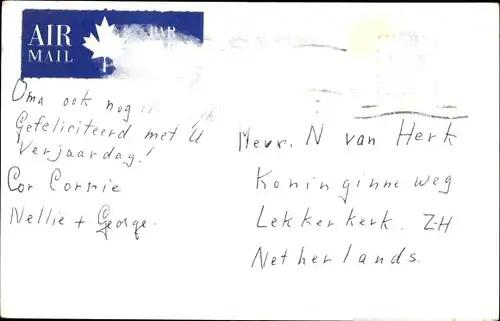 AIR PAR
MAIL
Oma ook nog
Gefeliciteerd met U
Verjaardag!
Cor Corrie
Nellie + George.
Mevr. N van Herk
Koninginneweg
Lekkerkerk. Z-H
Netherlands.